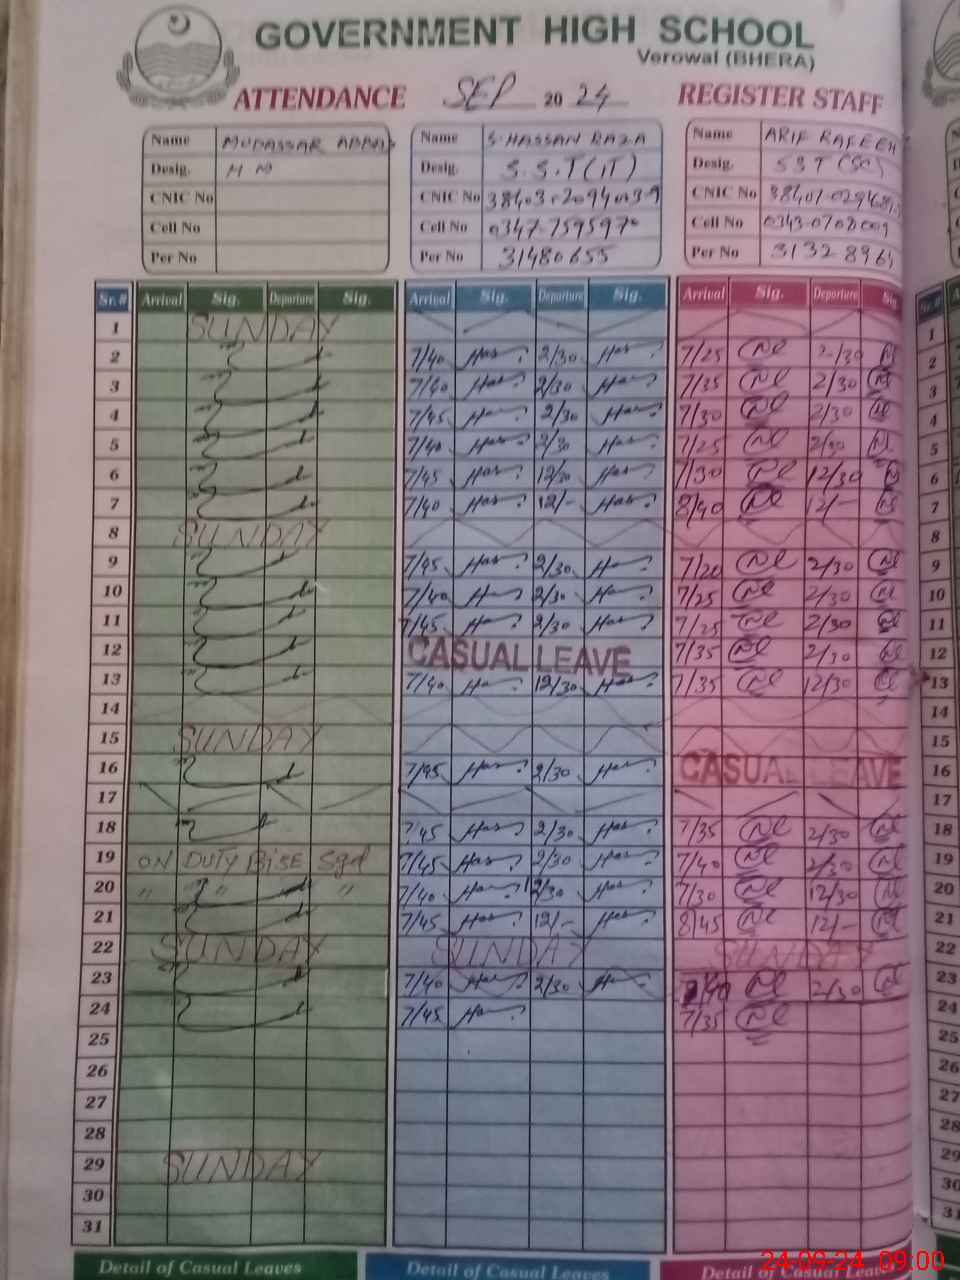 GOVERNMENT HIGH SCHOOL
Verowal (BHERA)
ATTENDANCE SEP 2024 REGISTER STAFF
Name MUDASSAR ABBAS Name S.HASSAN RAZA Name ARIF RAFEEH
Desig. H M Desig. S.S.T(IT) Desig. SST (SC)
CNIC No CNIC No CNIC No
Cell No Cell No Cell No
Per No Per No 31480655 Per No
Sr.# Arrival Sig. Departure Sig. Arrival Sig. Departure Sig. Arrival Sig. Departure Sig
1 SUNDAY 1
2 7/40 Has 2/30 Has 7/25 2/30 2
3 7/40 Has 2/30 Has 7/35 2/30 3
4 7/45 Has 2/30 Has 7/30 2/30 4
5 7/40 Has 2/30 Has 7/25 2/30 5
6 7/45 Has 12/30 Has 7/30 12/30 6
7 7/40 Has 12/- Has 8/40 12/- 7
8 SUNDAY 8
9 7/45 Has 2/30 Has 7/20 2/30 9
10 7/40 Has 2/30 Has 7/25 2/30 10
11 7/45 Has 2/30 Has 7/25 2/30 11
12 CASUAL LEAVE 7/35 2/30 12
13 7/40 Has 12/30 Has 7/35 12/30 13
14 14
15 SUNDAY 15
16 7/45 Has 2/30 Has CASUAL LEAVE 16
17 17
18 7/45 Has 2/30 Has 7/35 2/30 18
19 ON DUTY BISE Sgd 7/45 Has 2/30 Has 7/40 2/30 19
20 " " " 7/40 Has 12/30 Has 7/30 12/30 20
21 7/45 Has 12/- Has 8/45 12/- 21
22 SUNDAY SUNDAY SUNDAY 22
23 7/40 Has 2/30 Has 7/40 2/30 23
24 7/45 Has 7/35 24
25 25
26 26
27 27
28 28
29 SUNDAY 29
30 30
31 31
Detail of Casual Leaves Detail of Casual Leaves Detail of Casual Leaves
24-09-24 09:00